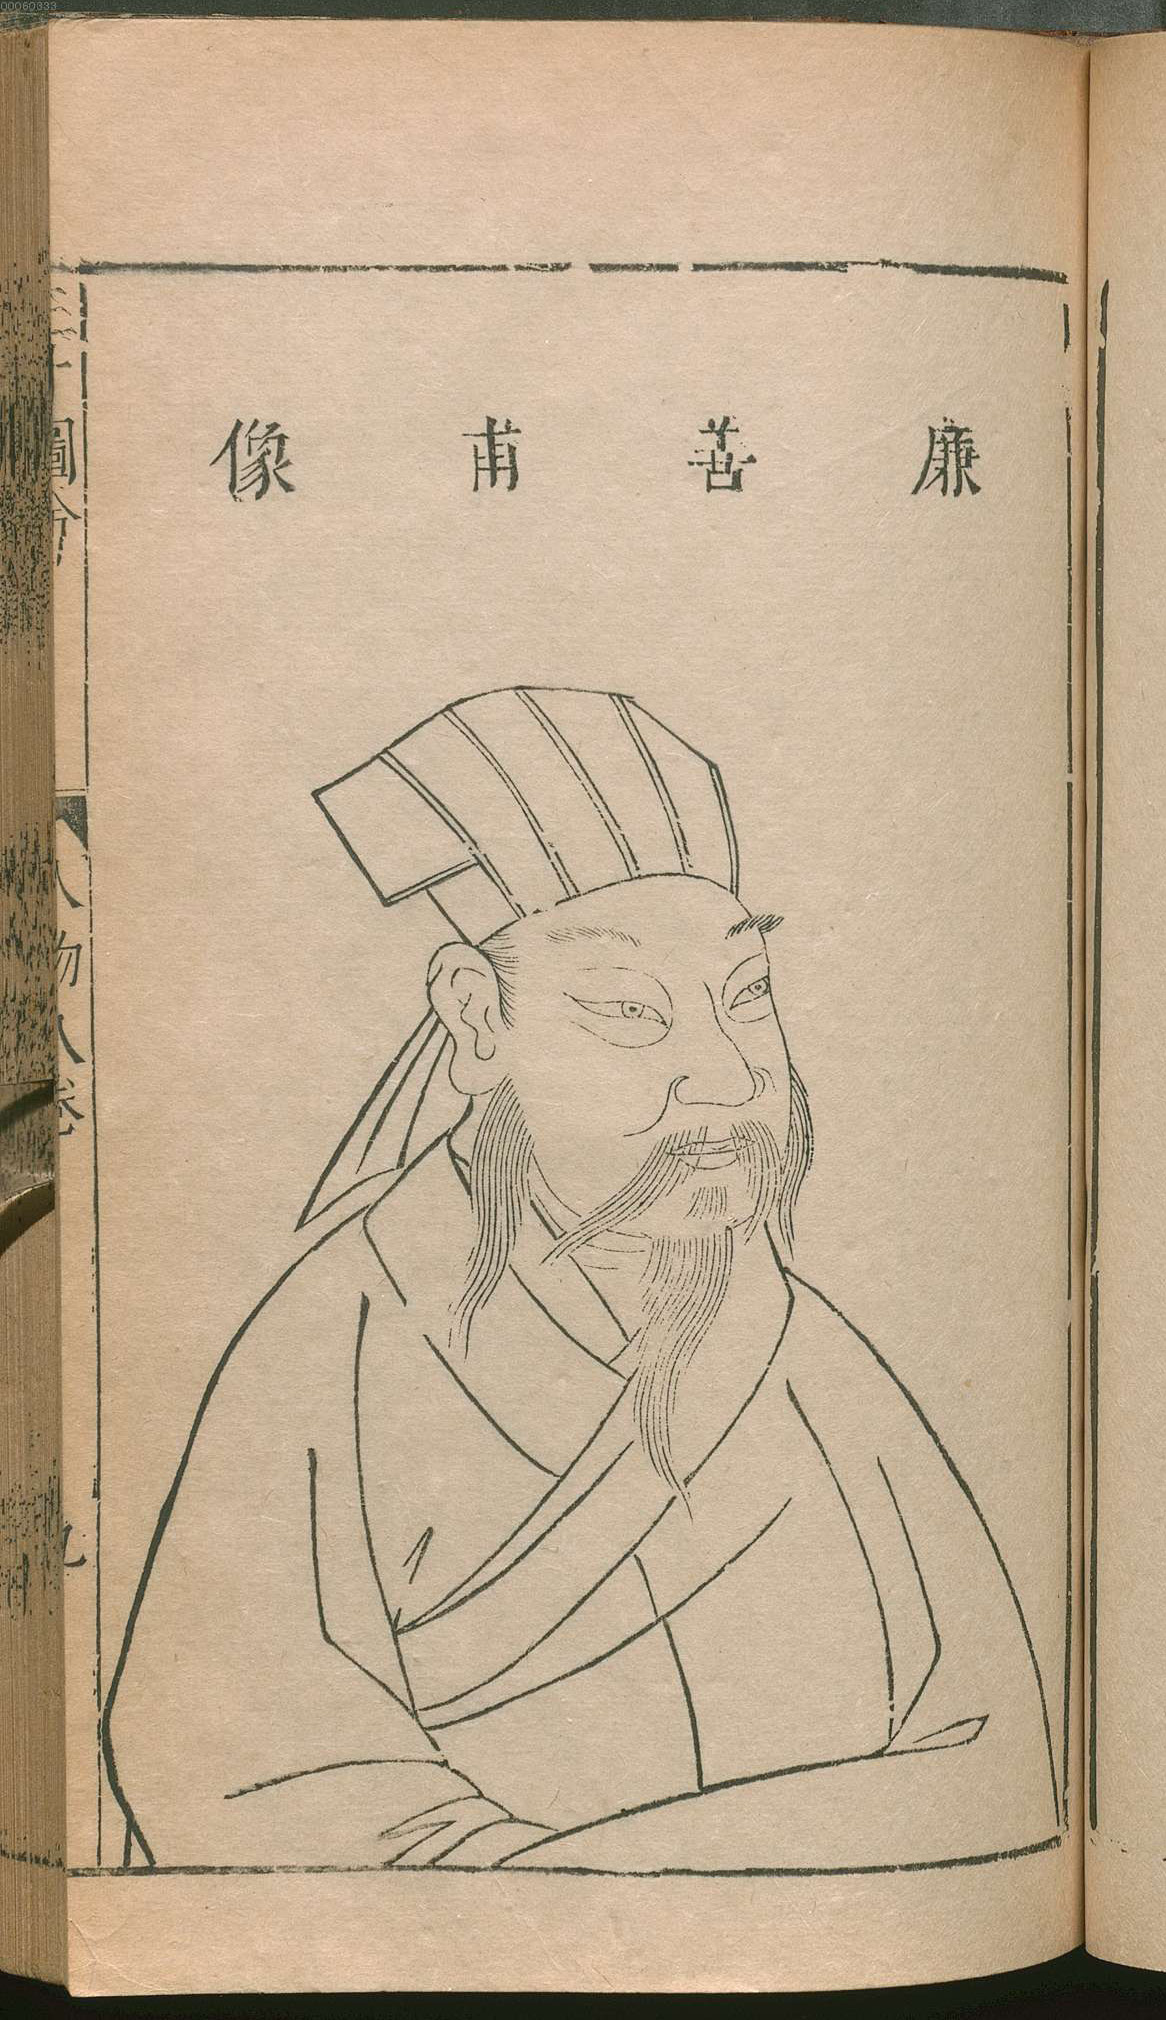 00060333
廉善甫像
圖會
人物八卷
九